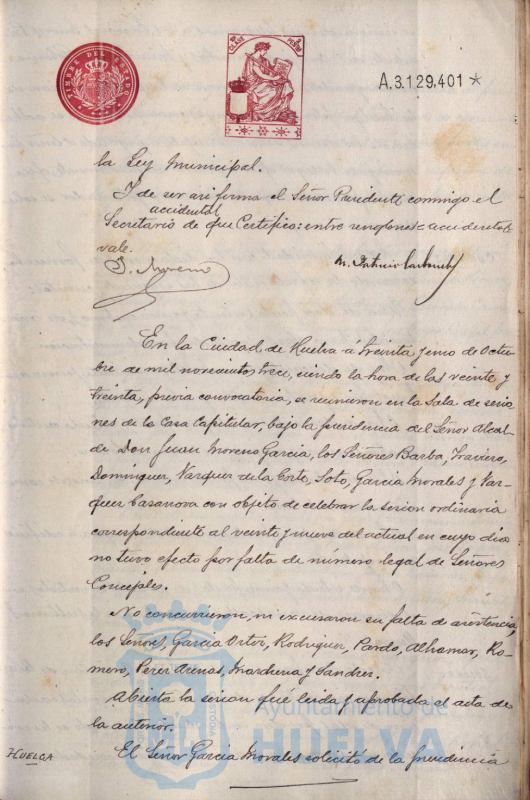 TIMBRE DEL ESTADO
CLASE
A.3.129,401 *
la Ley Municipal.
Y de ser asi firma el Señor Presidente conmigo el
accidental
Secretario de que Certifico: entre renglones = accidental =
vale.
J. Moreno
M. Patricio
En la Ciudad de Huelva á treinta y uno de Octu-
bre de mil novecientos trece, siendo la hora de las veinte y
treinta, previa convocatoria, se reunieron en la Sala de sesio-
nes de la Casa Capitular, bajo la presidencia del Señor Alcal-
de Don Juan Moreno Garcia, los Señores Barba, Traviero,
Dominguez, Vazquez de la Corte, Soto, Garcia Morales y Vaz-
quez Casanova con objeto de celebrar la sesion ordinaria
correspondiente al veinte y nueve del actual en cuyo dia
no tuvo efecto por falta de número legal de Señores
Concejales.
No concurrieron, ni excusaron su falta de asistencia,
los Señores, Garcia Ortiz, Rodriguez, Pardo, Alhamar, Ro-
mero, Perez Arenas, Marchena y Sanchez.
Abierta la sesion fué leida y aprobada el acta de
la anterior.
HUELGA
El Señor Garcia Morales solicitó de la presidencia
Ayuntamiento de
HUELVA